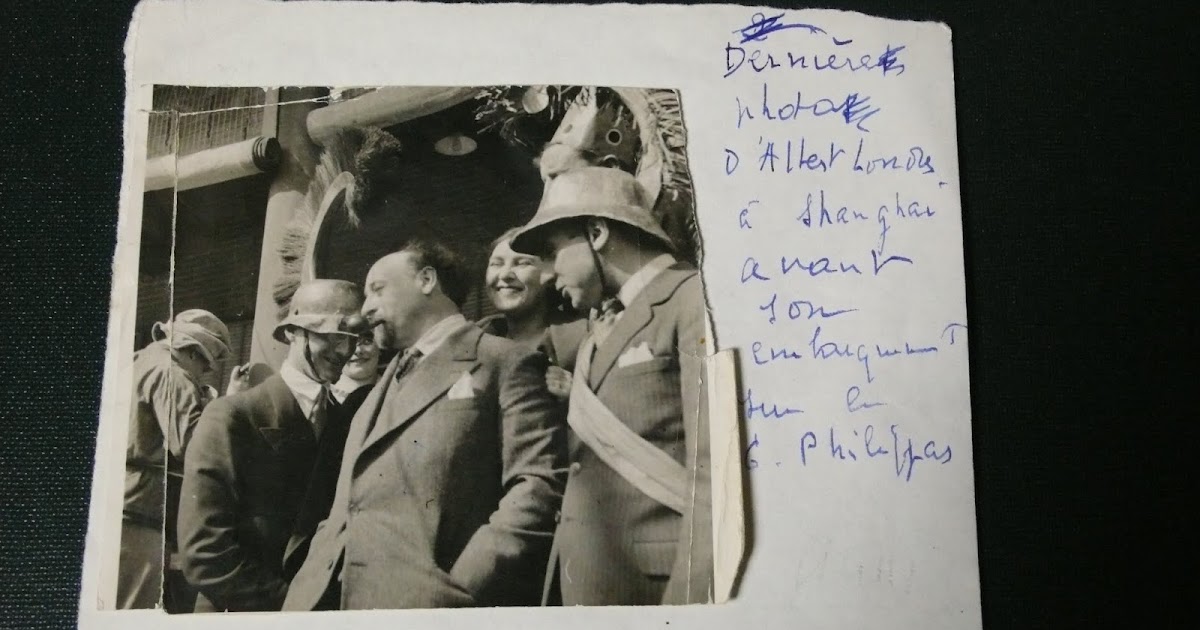 Dernière
photo
d'Albert Londres
à Shanghai
avant
son
embarquement
sur le
G. Philippas